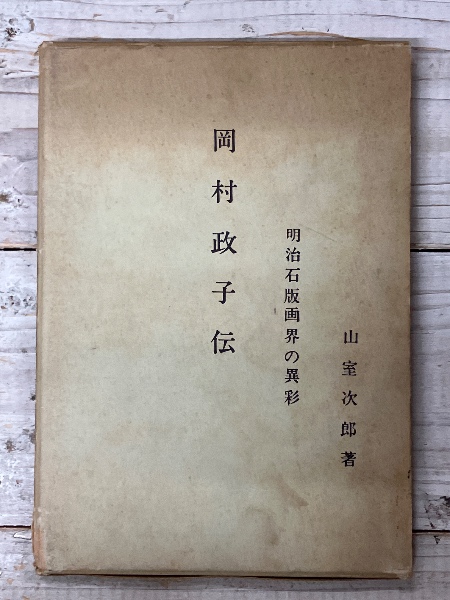 岡村政子伝
明治石版画界の異彩
山室次郎著